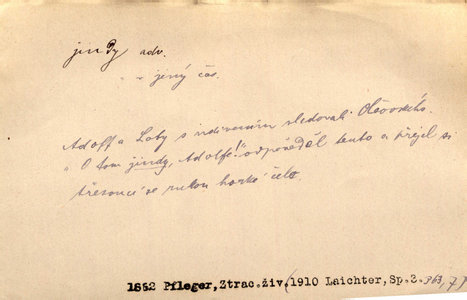 jindy adv.
v jiný čas.
Adolf a Loty s udivením sledovali Olšovského.
"O tom jindy, Adolfe!" odpověděl tento a přejel si
třesoucí se rukou horké čelo.
1862 Pfleger, Ztrac.živ./1910 Laichter, Sp.3. 363,77